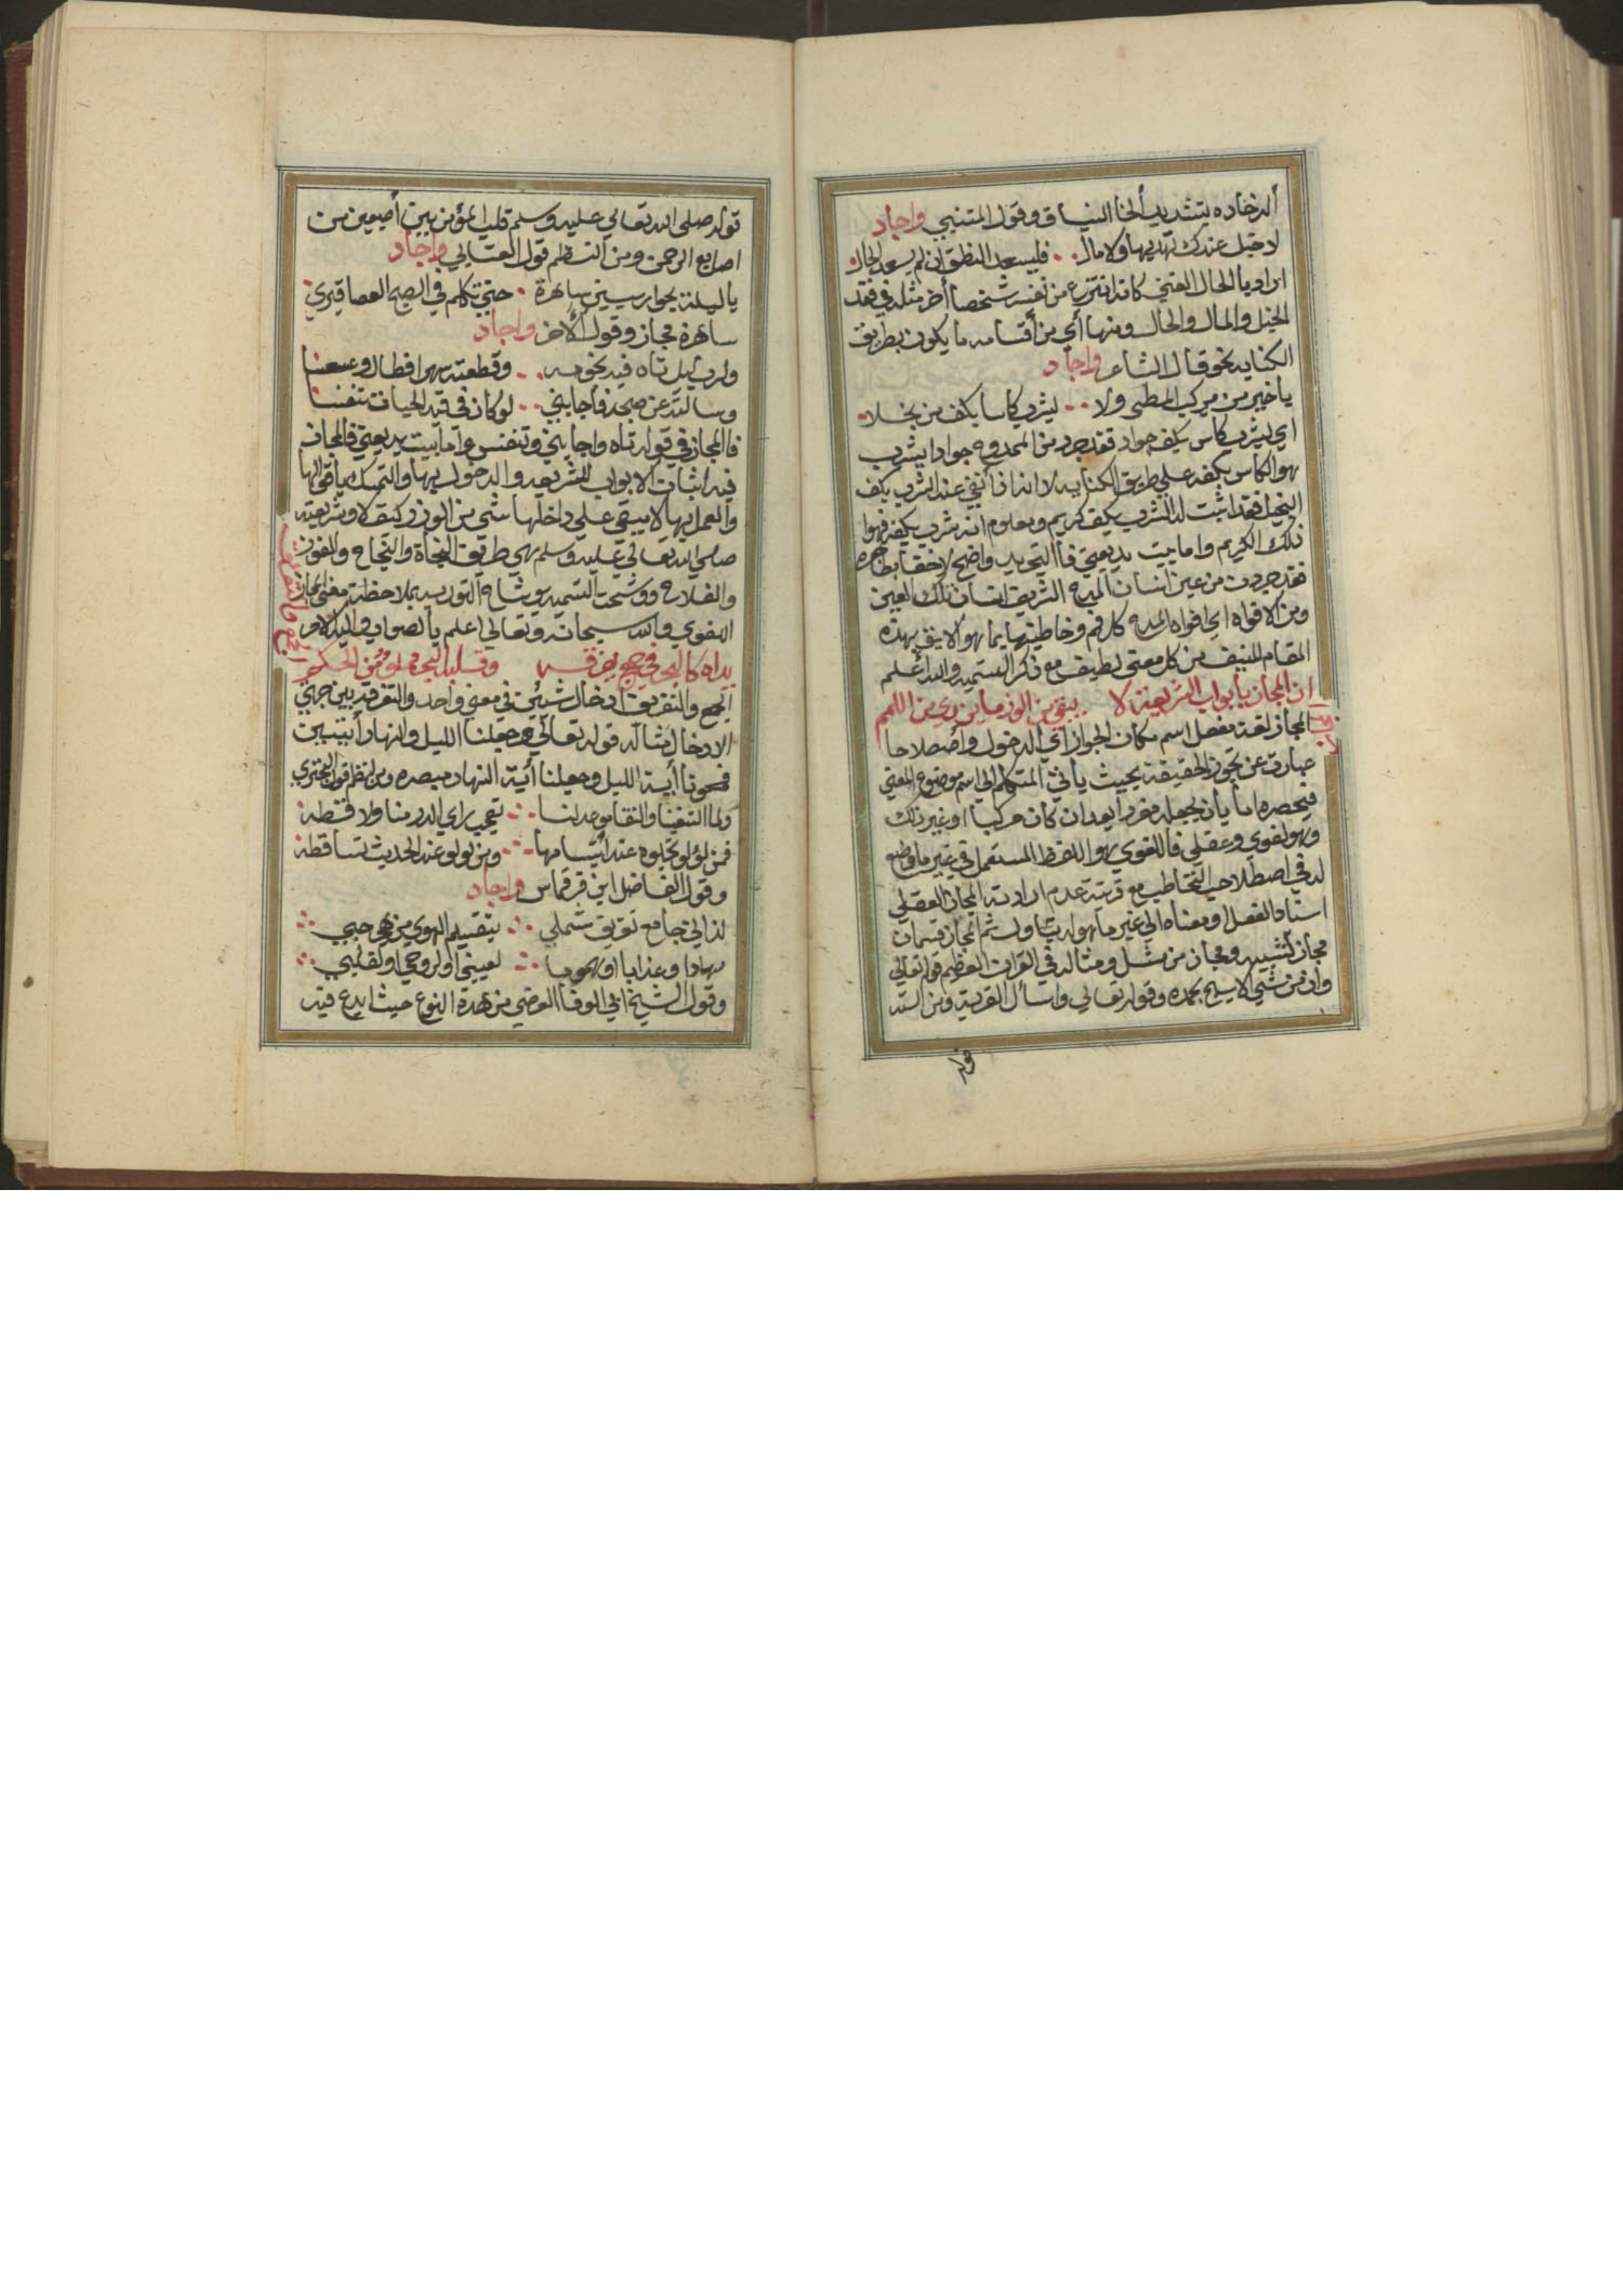 ألدخاده بتشديد ألخا السياق وقول المتنبي واجاد
لاخيل عندك تهديها ولامال فليسعد النطق ان لم يسعد الحال
اراد بالحال الغني كانه انتزع من نفسه شخصا أخر مثله في فقد
الخيل والمال والحال ومنها أي من أقسامه ما يكون بطريق
الكنايه نحو قال الشاعر واجاد
ياخير من يركب المطى ولا يشرب كاسا بكف من بخلا
اي يشرب كاس بكف جواد فقد جرد من الممدوح جوادا يشرب
هو الكاس بكفه علي طريق الكنايه لانه اذا أنتفي عنه الشرب بكف
البخيل فقد اثبت له الشرب بكف كريم ومعلوم انه يشرب بكفه فهوا
ذلك الكريم واما بيت بديعيتي فأالتجريد واضح لاخفا بظاهره
فقد جردت من عين انسان المدح الشريف انسان تلك العين
ومن الافواه اي افواه المدح كل فم وخاطبتها بما هو لايق بهذه
المقام المنيف من كل معني لطيف مع ذكر التسميه والله اعلم
ان المجاز بأبواب الشريعة لا يبقي من الوزر مايزري من اللمم
المجاز لغة مفعل اسم مكان الجواز أي الدخول وأصطلاحا
عبارة عن تجوز الحقيقة بحيث يأتي المتكلم الي اسم موضوع المعني
فيحصره اما بأن يجعله مفردا بعد ان كان مركبا او غير ذلك
وهو لغوي وعقلي فاللغوي هو اللفظ المستعمل في غير ما وضع
له في اصطلاح التخاطب مع قرينة عدم ارادته المجاز العقلي
اسناد الفعل او معناه الي غير ما هو له بتأول ثم المجاز قسمان
مجاز تشبيه ومجاز من مثل ومثاله في القران العظيم قوله تعالي
وان من شيي الايسبح بحمده وقوله تعالي واسأل القرية ومن السنه
قوله
قوله صلي الله تعالي عليه وسلم قلب المؤمن بين أصبعين من
اصابع الرحمن ومن النظم قول العتابي واجاد
ياليلة بحوارين ساهرة حتي تكلم في الصبح العصافيري
ساهرة مجاز وقول الأخر واجاد
ولرب ليل تاه فيه نجومه وقطعته سهرا فطال وعسعسا
وسالته عن صبحه فأجابني لوكان في قيد الحيات تنفسا
فاالمجاز في قوله تاه واجابني وتنفس واما بيت بديعيتي فالمجاز
فيه اثبات الابواب للشريعه والدخول بها والتمسك بأقوالها
والعمل بها لايبقي علي داخلها شي من الوزر كيف لا وشريعته
صلي الله تعالي عليه وسلم هي طريق النجاة والنجاح والفوز
والفلاح ووشحت التسميه بوشاح التوريه بملاحظة معني المجاز
اللغوي والله سبحانه وتعالي اعلم بألصواب واليه
الجمع مع التفريق
يداه كالبحر في جمع يفرقه وقلبه البحر مملو من الحكم
الجمع والتفريق ادخال شيئين في معني واحد والتفرقه بين جهتي
الادخال مثاله قوله تعالي وجعلنا الليل والنهار أيتين
فمحونا أية الليل وجعلنا أية النهار مبصره ومن النظم قول البحتري
ولما التقينا والنقا موعد لنا تعجب راي الدر منا ولاقطه
فمن لؤلؤ تجلوه عند ابتسامها ومن لولو عند الحديث تساقطه
وقول الفاضل ابن قرقماس واجاد
لذالي جامع تفريق شملي بتقسيم الهوي من حبي
سهادا وعذابا او هموما لعيني او لروحي او لقلبي
وقول الشيخ ابي الوفا العرضي من هذه النوع حيث ابدع فيه